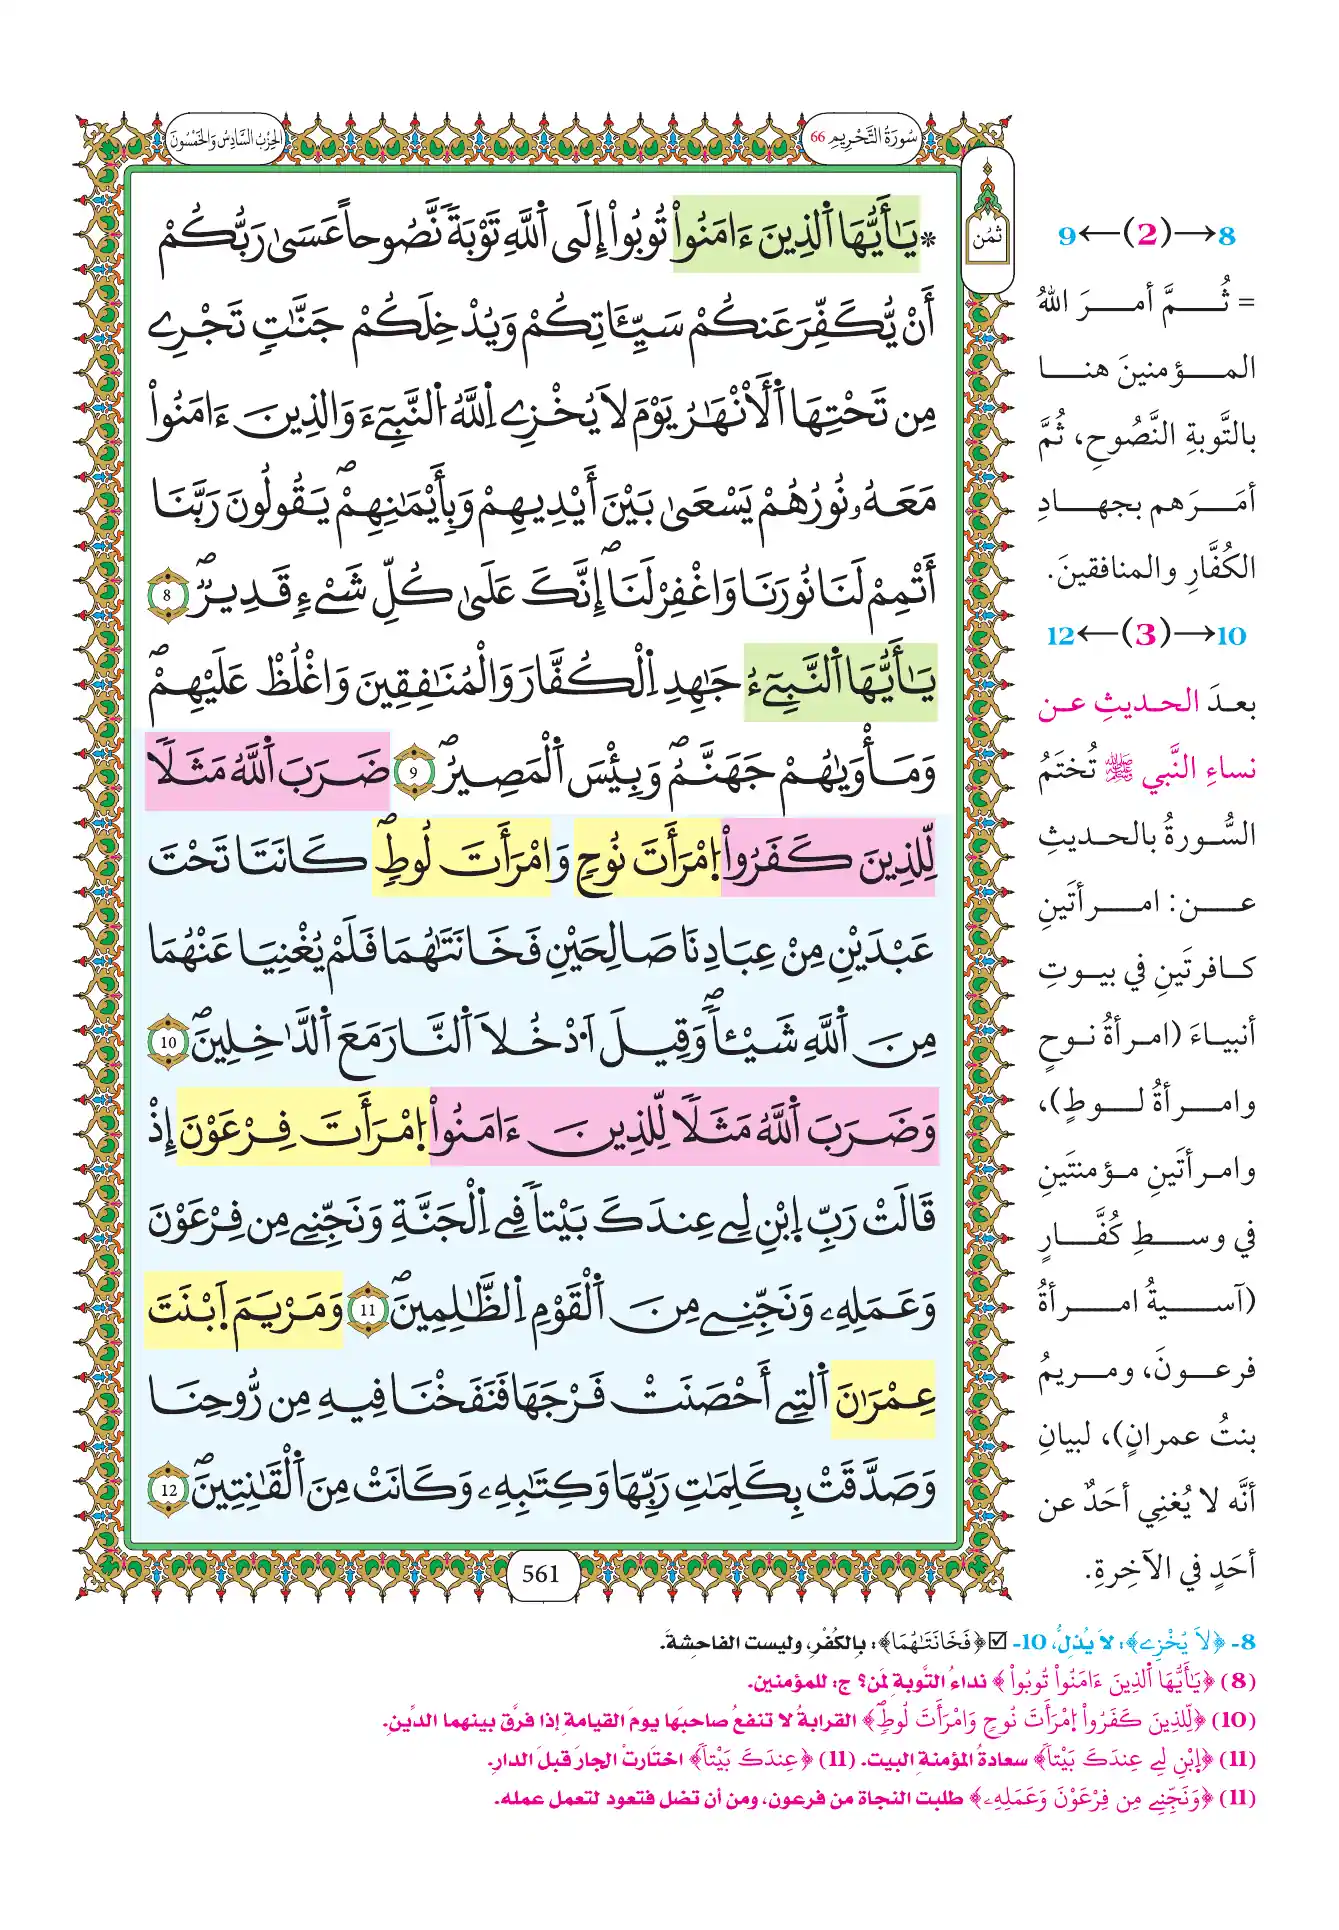 سُورَةُ التَّحْرِيمِ 66
الحِزْبُ السَّادِسُ وَالخَمْسُونَ
ثُمُن
* يَٰأَيُّهَا اَ۬لذِينَ ءَامَنُواْ تُوبُواْ إِلَى اَ۬للَّهِ تَوْبَةٗ نَّصُوحاً عَسَىٰ رَبُّكُمُۥٓ
أَنْ يُّكَفِّرَ عَنكُمْ سَيِّـَٔاتِكُمْ وَيُدْخِلَكُمْ جَنَّٰتٖ تَجْرِے
مِن تَحْتِهَا اَ۬لَانْهَٰرُ يَوْمَ لَا يُخْزِے اِ۬للَّهُ اُ۬لنَّبِيٓءَ وَالذِينَ ءَامَنُواْ
مَعَهُۥ نُورُهُمْ يَسْعَىٰ بَيْنَ أَيْدِيهِمْ وَبِأَيْمَٰنِهِمْ يَقُولُونَ رَبَّنَا
أَتْمِمْ لَنَا نُورَنَا وَاغْفِرْ لَنَا إِنَّكَ عَلَىٰ كُلِّ شَےْءٖ قَدِيرٞ 8
يَٰأَيُّهَا اَ۬لنَّبِيٓءُ جَٰهِدِ اِ۬لْكُفَّارَ وَالْمُنَٰفِقِينَ وَاغْلُظْ عَلَيْهِمْ
وَمَأْوَيٰهُمْ جَهَنَّمُ وَبِئْسَ اَ۬لْمَصِيرُ 9 ضَرَبَ اَ۬للَّهُ مَثَلٗا
لِّلذِينَ كَفَرُواْ اُ۪مْرَأَتَ نُوحٖ وَامْرَأَتَ لُوطٖ كَانَتَا تَحْتَ
عَبْدَيْنِ مِنْ عِبَادِنَا صَٰلِحَيْنِ فَخَانَتَٰهُمَا فَلَمْ يُغْنِيَا عَنْهُمَا
مِنَ اَ۬للَّهِ شَيْـٔاٗ وَقِيلَ اَ۟دْخُلَا اَ۬لنَّارَ مَعَ اَ۬لدَّٰخِلِينَ 10
وَضَرَبَ اَ۬للَّهُ مَثَلٗا لِّلذِينَ ءَامَنُواْ اُ۪مْرَأَتَ فِرْعَوْنَ إِذْ
قَالَتْ رَبِّ اِ۪بْنِ لِے عِندَكَ بَيْتاٗ فِے اِ۬لْجَنَّةِ وَنَجِّنِے مِن فِرْعَوْنَ
وَعَمَلِهِۦ وَنَجِّنِے مِنَ اَ۬لْقَوْمِ اِ۬لظَّٰلِمِينَ 11 وَمَرْيَمَ اَ۪بْنَتَ
عِمْرَٰنَ اَ۬لتِے أَحْصَنَتْ فَرْجَهَا فَنَفَخْنَا فِيهِ مِن رُّوحِنَا
وَصَدَّقَتْ بِكَلِمَٰتِ رَبِّهَا وَكِتَٰبِهِۦ وَكَانَتْ مِنَ اَ۬لْقَٰنِتِينَ 12
561
8→(2)←9
= ثُمَّ أمرَ اللهُ
المؤمنينَ هنا
بالتَّوبةِ النَّصُوحِ، ثُمَّ
أمَرَهم بجهادِ
الكُفَّارِ والمنافقينَ.
10→(3)←12
بعدَ الحديثِ عن
نساءِ النَّبي ﷺ تُختَمُ
السُّورةُ بالحديثِ
عن: امرأتَينِ
كافرتَينِ في بيوتِ
أنبياءَ (امرأةُ نوحٍ
وامرأةُ لوطٍ)،
وامرأتَينِ مؤمنتَينِ
في وسطِ كُفَّارٍ
(آسيةُ امرأةُ
فرعونَ، ومريمُ
بنتُ عمرانٍ)، لبيانِ
أنَّه لا يُغنِي أحَدٌ عن
أحَدٍ في الآخِرةِ.
8- ﴿لَا يُخْزِے﴾: لَا يُذِلُّ، 10- ☑ ﴿فَخَانَتَٰهُمَا﴾: بِالكُفْرِ، وليست الفاحشةَ.
(8) ﴿يَٰأَيُّهَا اَ۬لذِينَ ءَامَنُواْ تُوبُواْ﴾ نداءُ التَّوبةِ لمَن؟ ج: للمؤمنين.
(10) ﴿لِّلذِينَ كَفَرُواْ اُ۪مْرَأَتَ نُوحٖ وَامْرَأَتَ لُوطٖ﴾ القرابةُ لا تنفعُ صاحبَها يومَ القيامةِ إذا فرَّق بينهما الدِّين.
(11) ﴿اِ۪بْنِ لِے عِندَكَ بَيْتاٗ﴾ سعادةُ المؤمنةِ البيت. (11) ﴿عِندَكَ بَيْتاٗ﴾ اختَارتْ الجارَ قبلَ الدارِ.
(11) ﴿وَنَجِّنِے مِن فِرْعَوْنَ وَعَمَلِهِۦ﴾ طلبت النجاة من فرعون، ومن أن تضل فتعود لتعمل عمله.